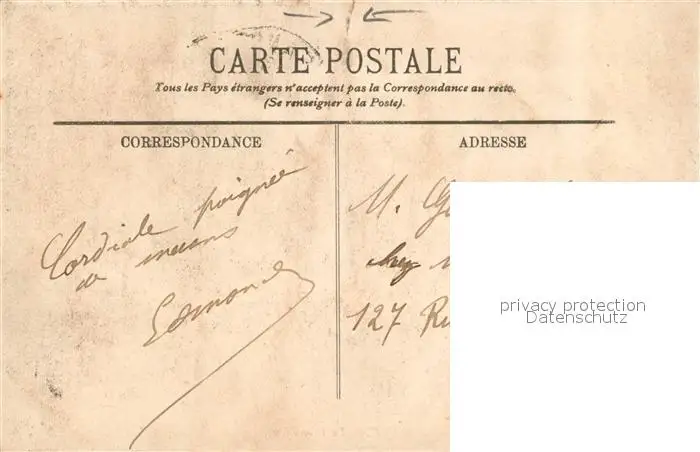 CARTE POSTALE
Tous les Pays étrangers n'acceptent pas la Correspondance au recto.
(Se renseigner à la Poste).
CORRESPONDANCE
Cordiale poignée
de mains
Edmond
ADRESSE
M. 
chez
127 Ru
privacy protection
Datenschutz